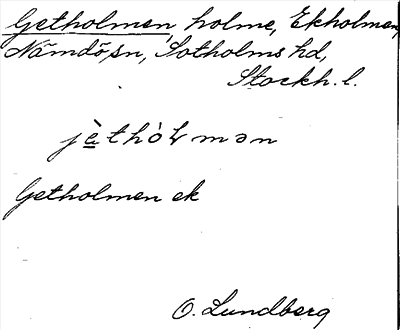 Getholmen, holme, Ekholmen,
Nämdö sn, Sotholms hd,
Stockh. l.
Getholmen ek
O. Lundberg